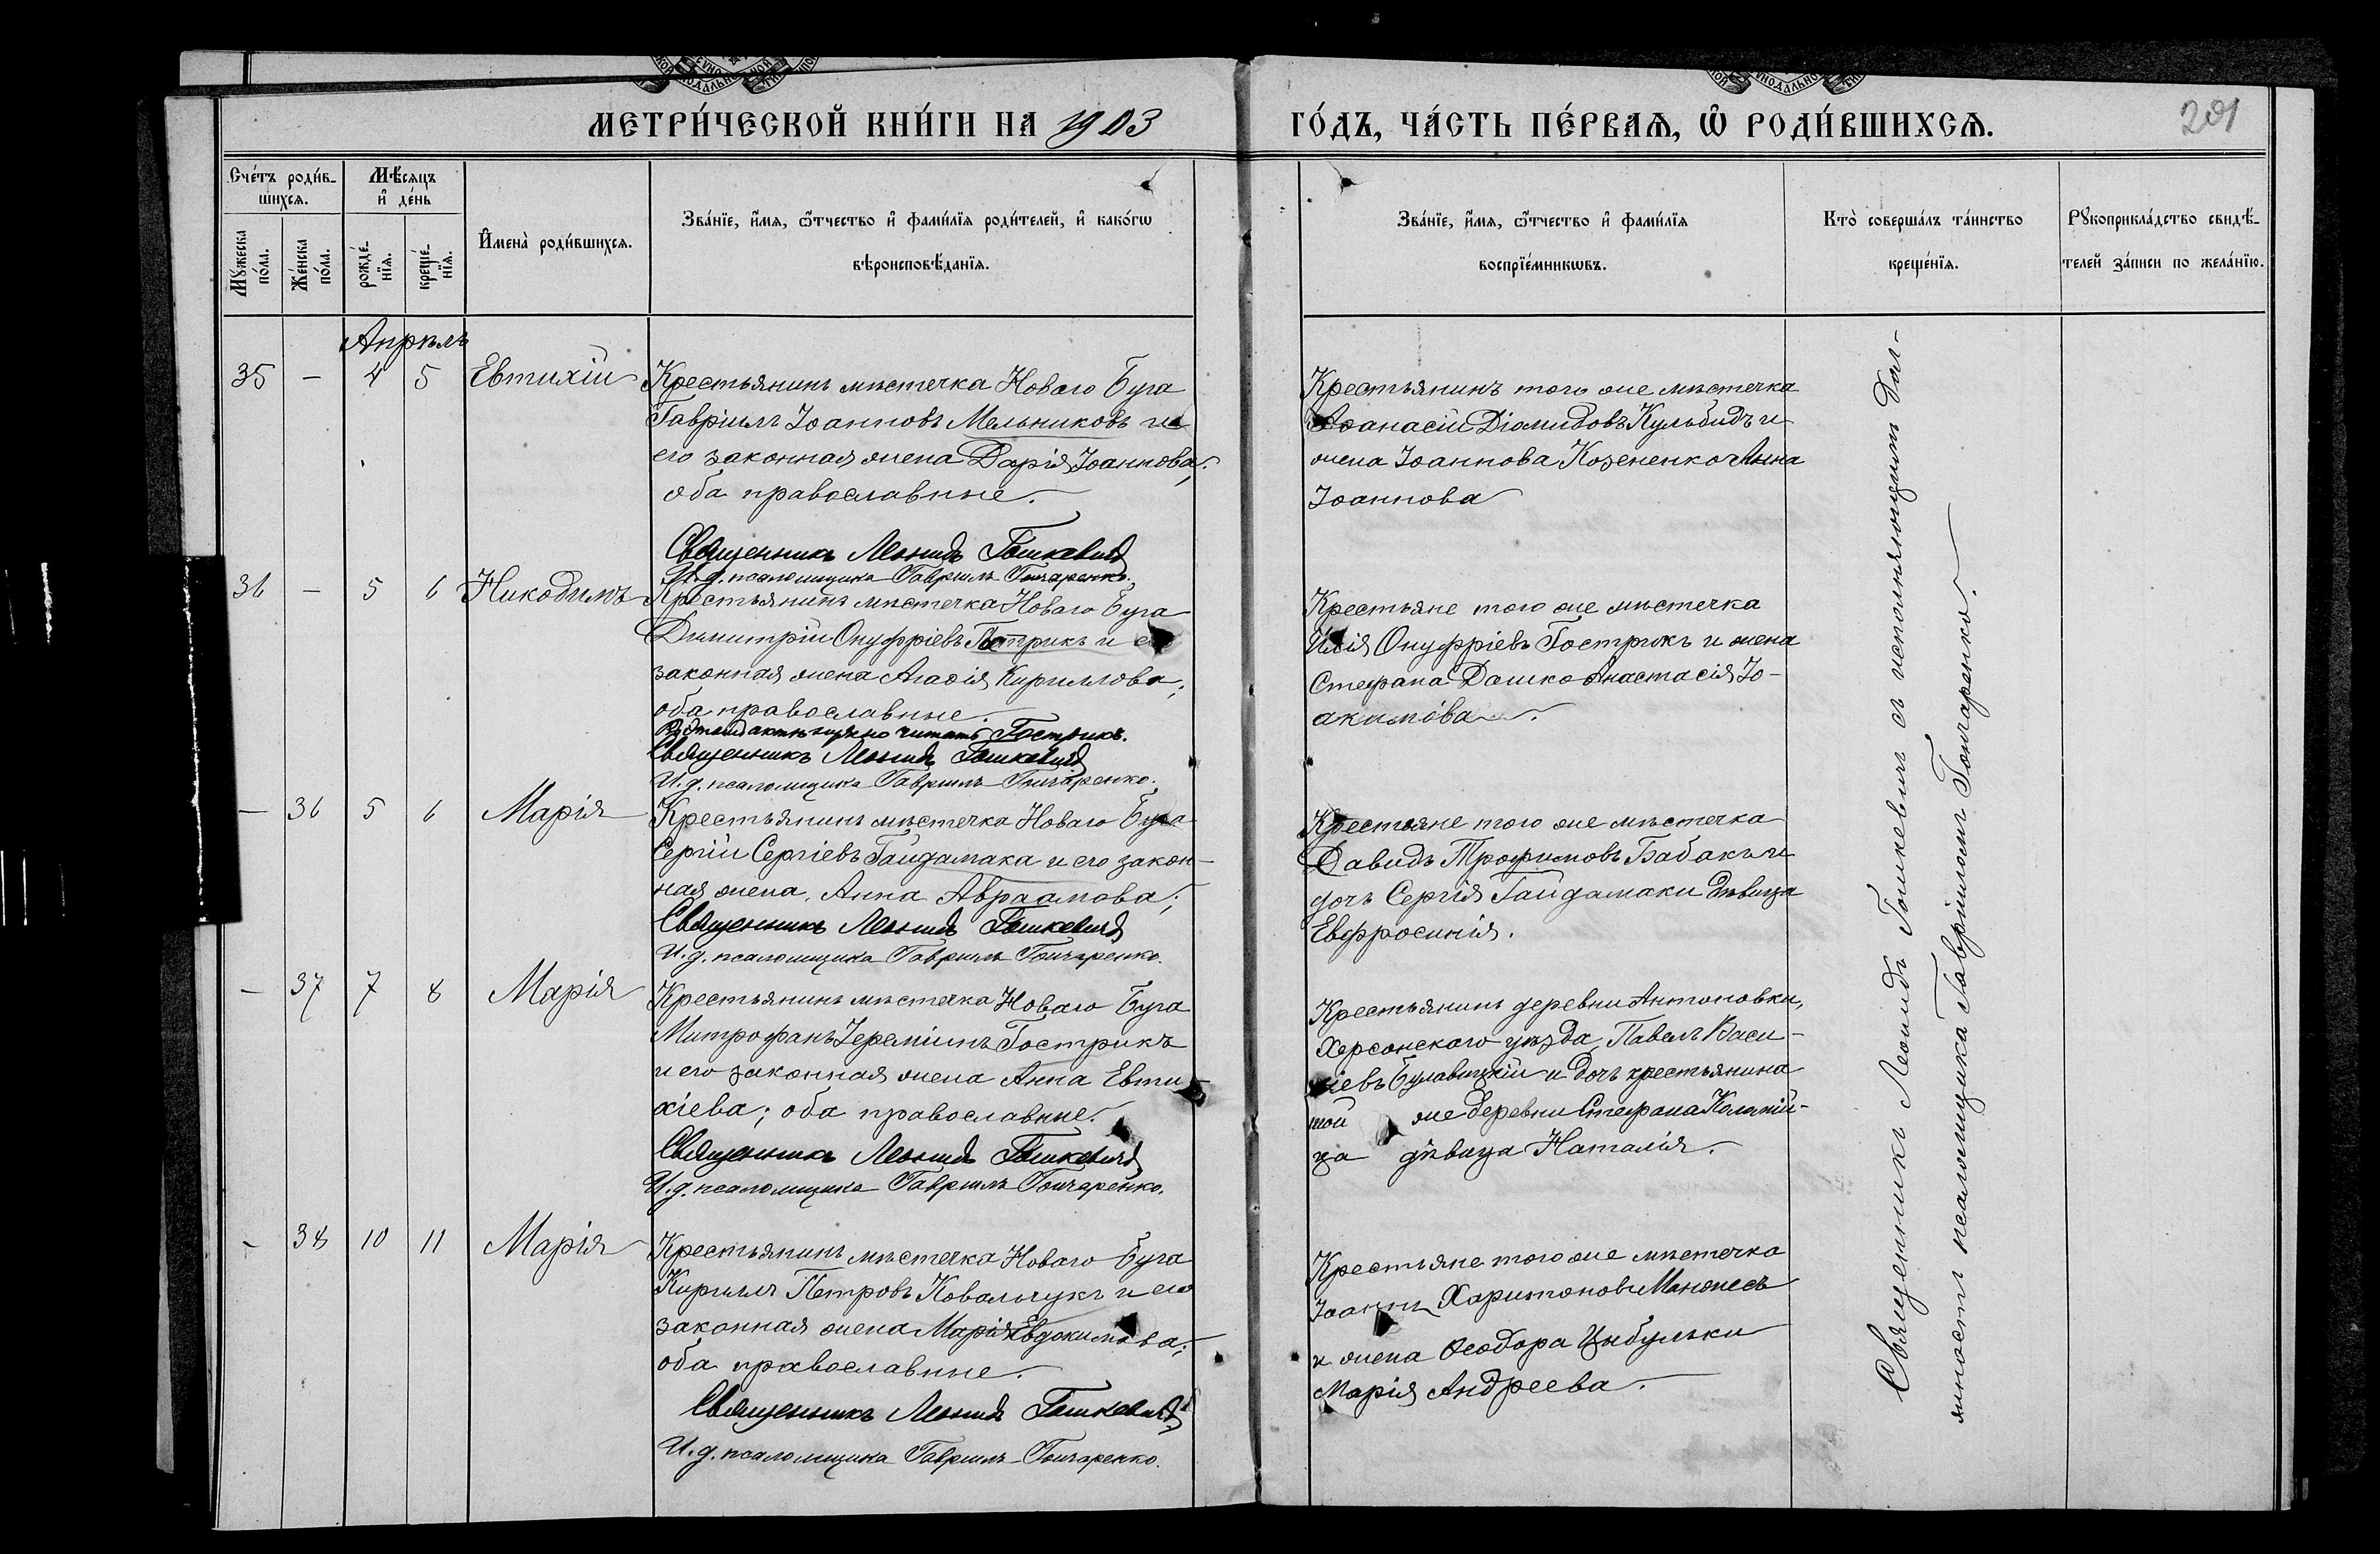 МЕТРИ́ЧЕСКОЙ КНИ́ГИ НА 1903
ГО́ДЪ, ЧА́СТЬ ПЕ́РВАѦ, Ѡ РОДИ́ВШИХСѦ.
201
Сче́тъ роди́в-
шихсѧ.
Мѣ́сѧцъ
и҆ де́нь
Мꙋжеска
по́ла.
Же́нска
по́ла.
рожде́-
нїѧ.
креще́-
нїѧ.
И҆мена̀ роди́вшихсѧ.
Зва́нїе, и҆́мѧ, ѻ҆́тчество и҆ фами́лїѧ роди́телей, и҆ како́гѡ
вѣроисповѣ́данїѧ.
Зва́нїе, и҆́мѧ, ѻ҆́тчество и҆ фами́лїѧ
воспрїе́мникѡвъ.
Кто̀ соверша́лъ та́инство
креще́нїѧ.
Рꙋкоприкла́дство свидѣ́-
телей за́писи по жела́нїю.
Апрѣль
35 — 4 5 Евтихій
Крестьянинъ мѣстечка Новаго Буга
Гавріилъ Іоанновъ Мельниковъ и
его законная жена Дарія Іоаннова;
оба православные.
Священникъ Леонидъ Гошкевичъ
И. д. псаломщика Гавріилъ Гончаренко.
Крестьянинъ того же мѣстечка
Аѳанасій Діомидовъ Кульбидъ и
жена Іоаннова Козененко Анна
Іоаннова
36 — 5 6 Никодимъ
Крестьянинъ мѣстечка Новаго Буга
Димитрій Онуфріевъ Петрикъ и его
законная жена Агаѳія Кириллова;
оба православные.
читать Гострикъ.
Священникъ Леонидъ Гошкевичъ
И. д. псаломщика Гавріилъ Гончаренко.
Крестьяне того же мѣстечка
Илія Онуфріевъ Гострикъ и жена
Стефана Дашко Анастасія Іо-
акимова.
— 36 5 6 Марія
Крестьянинъ мѣстечка Новаго Буга
Сергій Сергіевъ Гайдамака и его закон-
ная жена, Анна Авраамова;
Священникъ Леонидъ Гошкевичъ
И. д. псаломщика Гавріилъ Гончаренко.
Крестьяне того же мѣстечка
Давидъ Трофимовъ Бабакъ и
дочь Сергія Гайдамаки дѣвица
Евфросинія.
— 37 7 8 Марія
Крестьянинъ мѣстечка Новаго Буга
Митрофанъ Іереміинъ Гострикъ
и его законная жена Анна Евти-
хіева; оба православные.
Священникъ Леонидъ Гошкевичъ
И. д. псаломщика Гавріилъ Гончаренко.
Крестьянинъ деревни Антоновки,
Херсонскаго уѣзда, Павелъ Васи-
ліевъ Булавицкій и дочь крестьянина
той же деревни Стефана Коломій-
ца дѣвица Наталія.
— 38 10 11 Марія
Крестьянинъ мѣстечка Новаго Буга
Кириллъ Петровъ Ковальчукъ и его
законная жена Марія Евдокимова;
оба православные.
Священникъ Леонидъ Гошкевичъ
И. д. псаломщика Гавріилъ Гончаренко.
Крестьяне того же мѣстечка
Іоаннъ Харитоновъ Манжесъ
и жена Ѳеодора Цыбульки
Марія Андреева.
Священникъ Леонидъ Гошкевичъ съ исполняющимъ дол-
жность псаломщика Гавріиломъ Гончаренко.